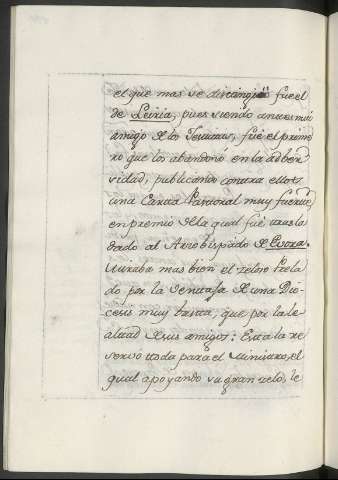 el que mas se distinguió fue el
de Leiria, pues siendo antes mui
amigo de los Jesuitas, fué el prime
ro que los abandonó en la adver
sidad, publicando contra ellos
una Carta Pastoral muy fuerte,
en premio de la qual fué trasla
dado al Arzobispado de Evora.
Miraba mas bien el zeloso Prela
do por la ventaja de una Dio
cesis muy basta, que por la le
altad de sus amigos: Esta la re
servó toda para el Ministro, el
qual apoyando su gran zelo, le